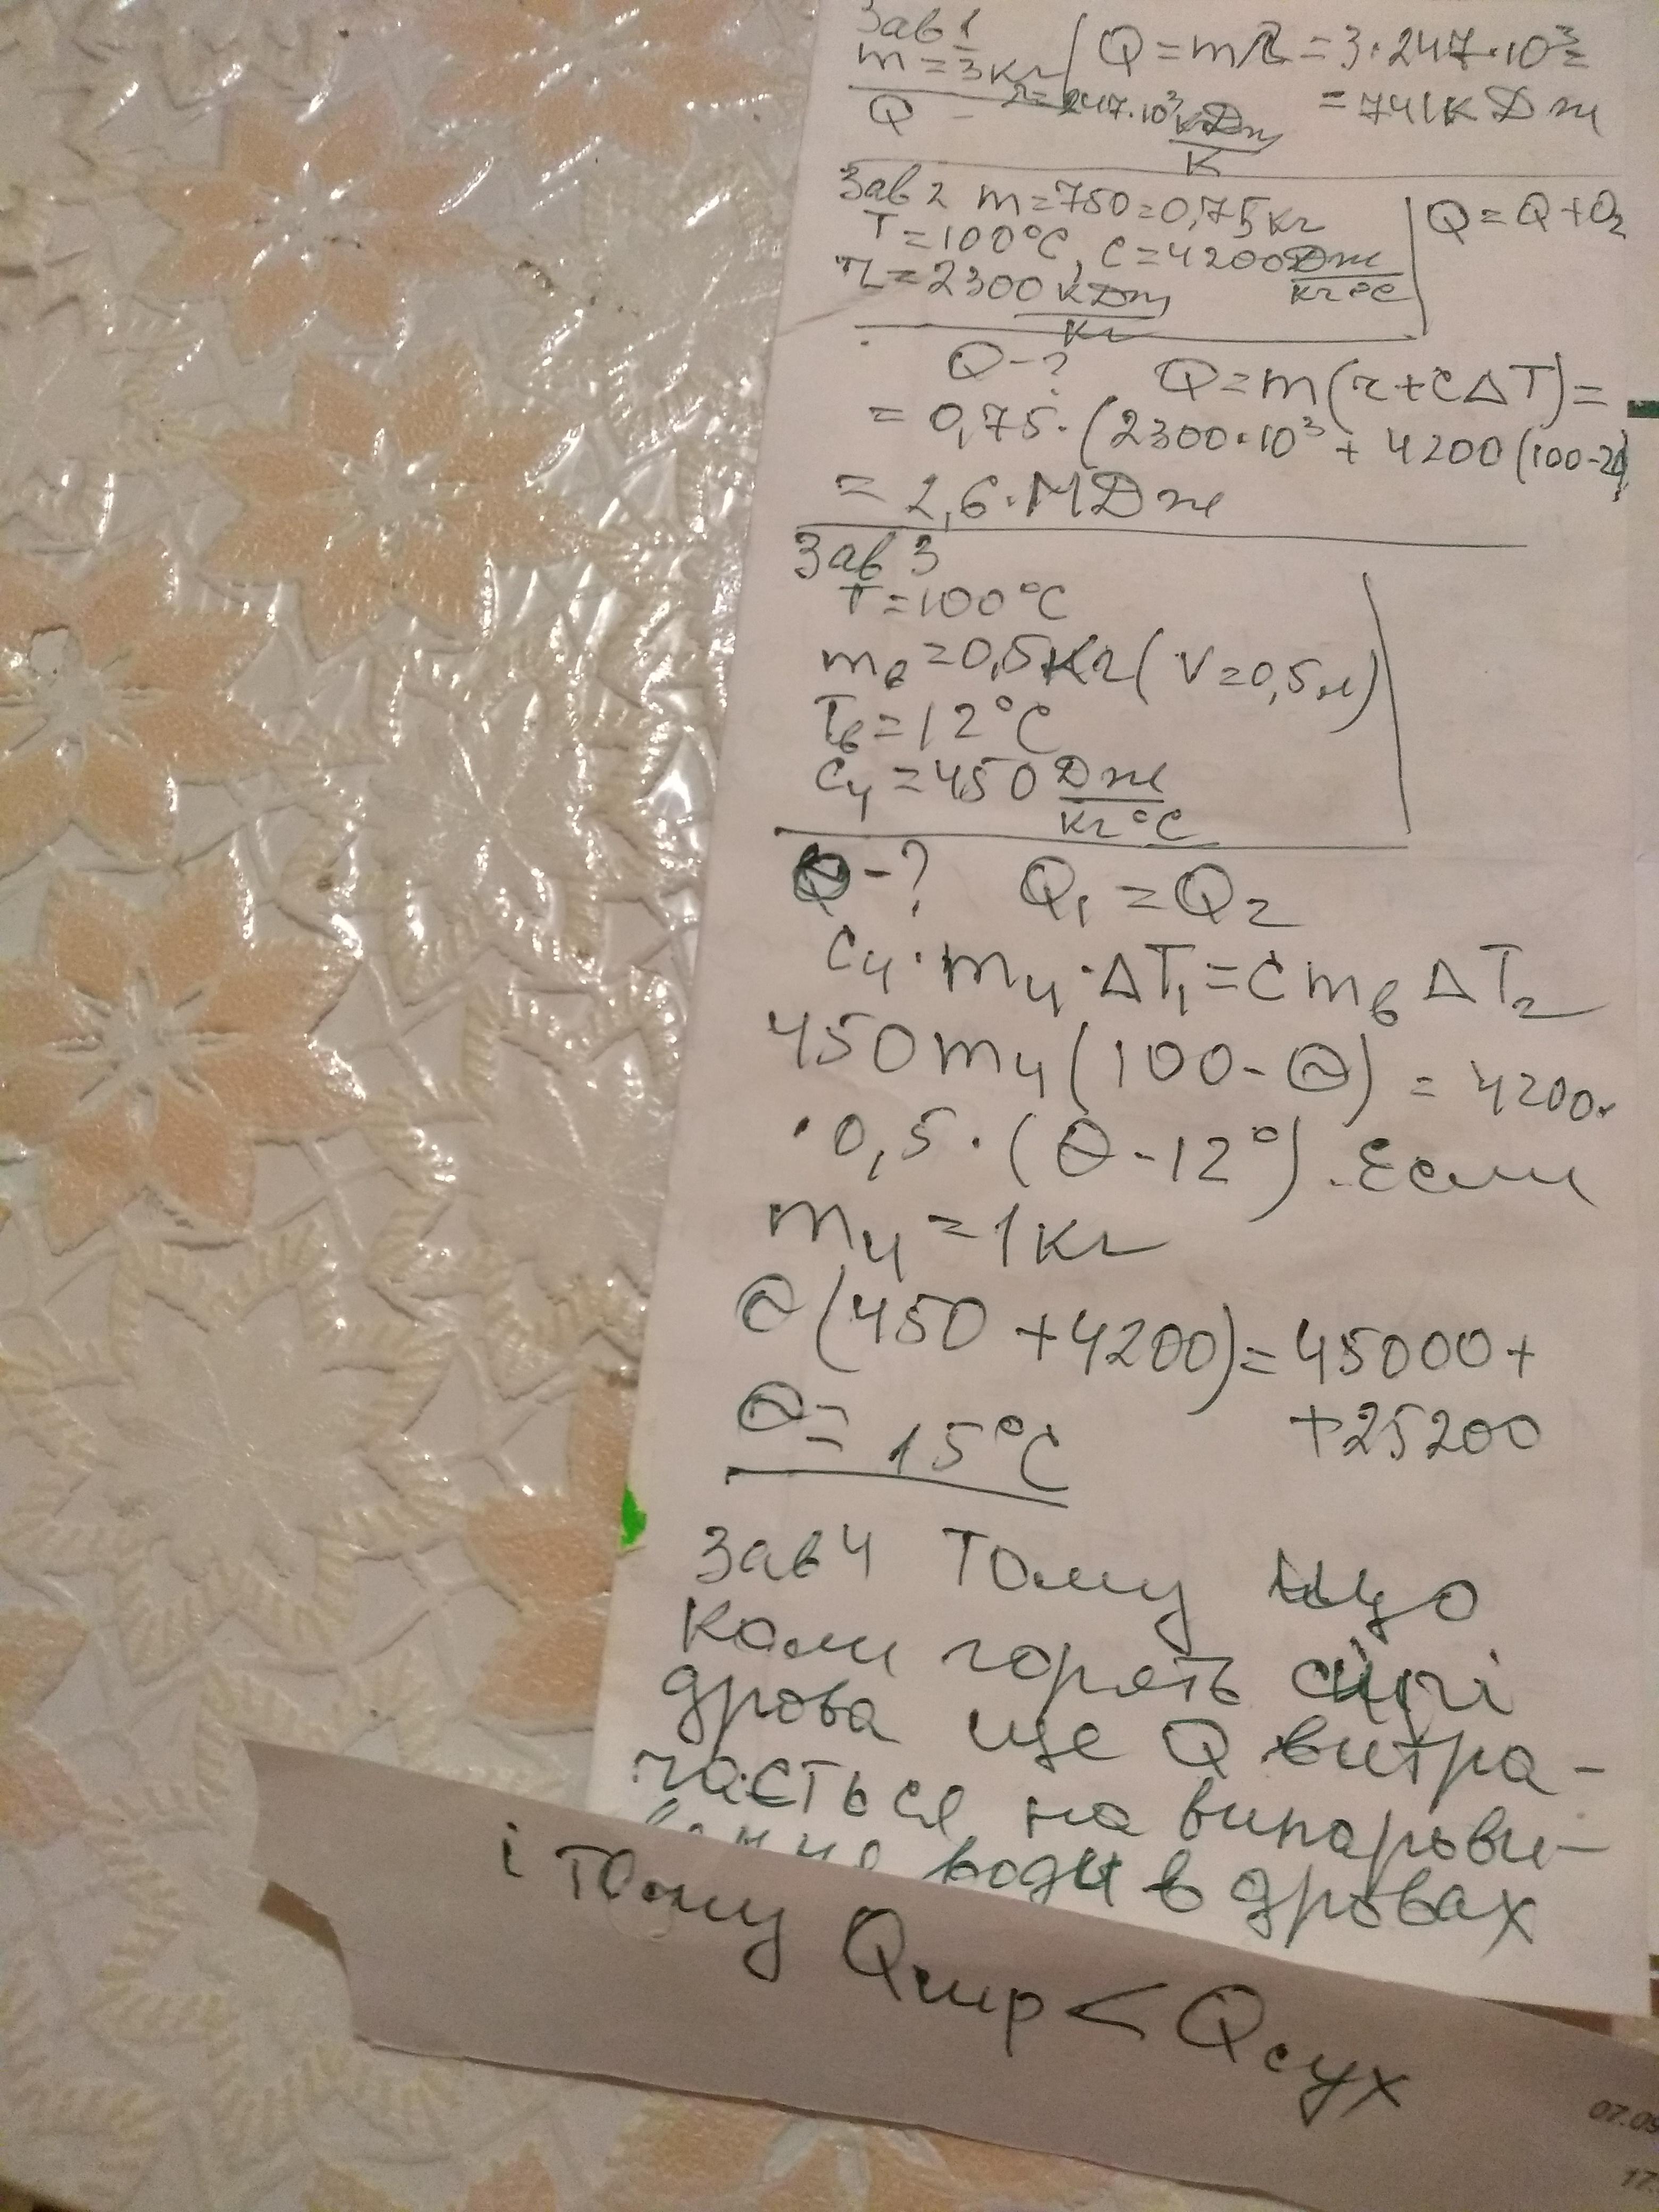 Зав 1
m = 3 кг Q = mλ = 3·247·10³ =
λ = 247·10³ кДж/К = 741 кДж
Q -
Зав 2 m = 750 = 0,75 кг Q = Q + Q₂
T = 100°C, c = 4200 Дж/кг°С
r = 2300 кДж/кг
Q - ? Q = m(r + cΔT) =
= 0,75·(2300·10³ + 4200(100-20)
= 2,6·МДж
Зав 3
T = 100°C
mв = 0,5 кг (V = 0,5 л)
Tв = 12°C
cч = 450 Дж/кг°С
- ? Q₁ = Q₂
cч·mч·ΔT₁ = c mв ΔT₂
450 mч (100 - Θ) = 4200·
·0,5·(Θ - 12°). Если
mч = 1 кг
Θ(450 + 4200) = 45000 +
+ 25200
Θ = 15°C
Зав 4 Тому що
коли горять сирі
дрова ще Q витра-
чається на випарови-
води в дровах
і тому Qсир < Qсух
07.09
17.